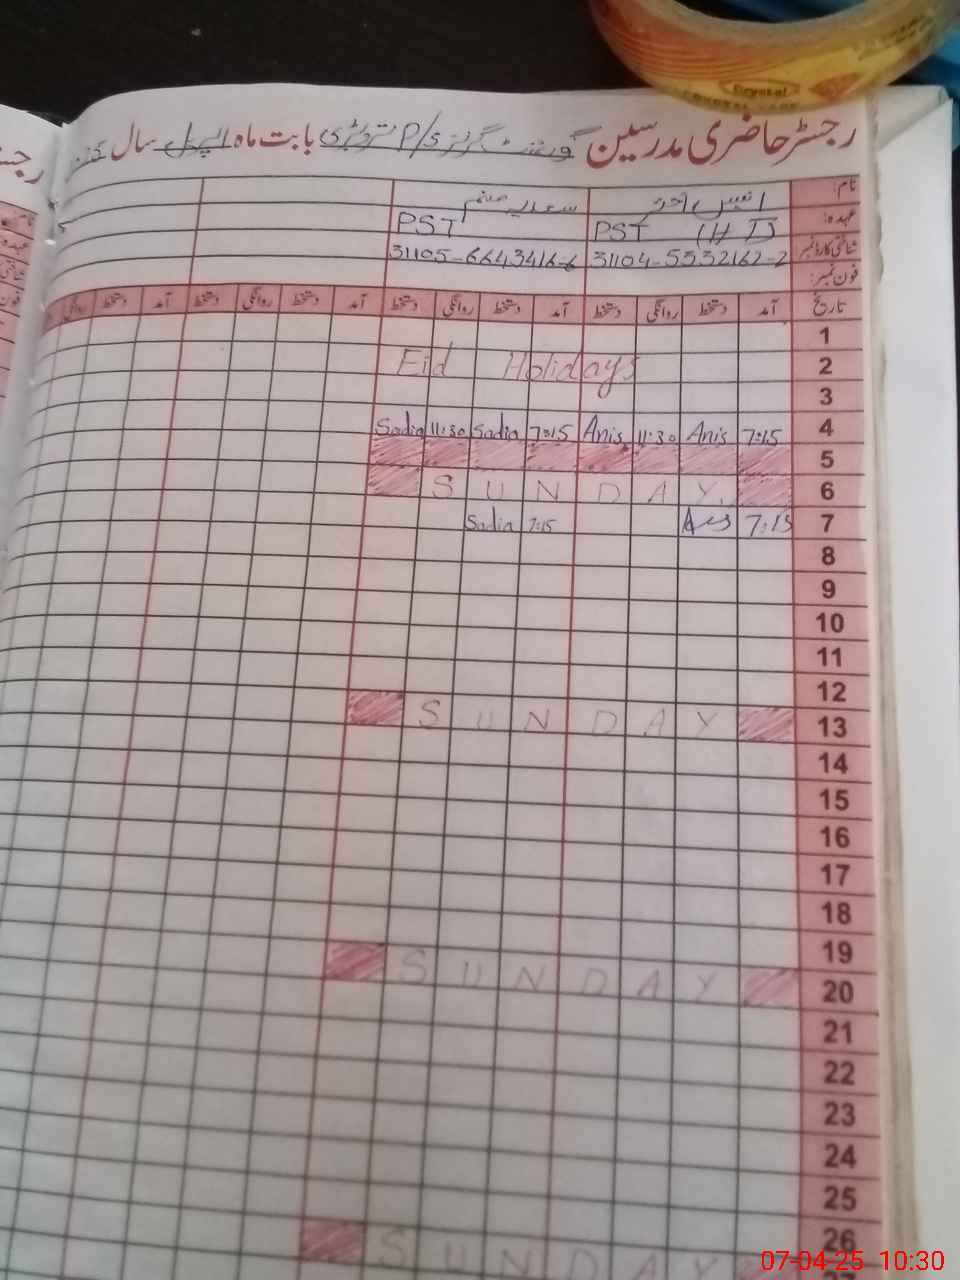 Crystal
رجسٹر حاضری مدرسین گورنمنٹ گرلز P/S بابت ماہ اپریل سال
نام: انیس احمد سعدیہ صنم
عہدہ: PST (HT) PST
شناختی کارڈ نمبر 31104-5532162-2 31105-6643416-6
فون نمبر:
تاریخ آمد دستخط روانگی دستخط آمد دستخط روانگی دستخط آمد دستخط روانگی دستخط آمد دستخط روانگی
1
2 Eid Holidays
3
4 7:15 Anis 11:30 Anis 7:15 Sadia 11:30 Sadia
5
6 SUNDAY
7 7:15 7:15 Sadia
8
9
10
11
12
13 SUNDAY
14
15
16
17
18
19
20 SUNDAY
21
22
23
24
25
26
SUNDAY
07-04-25 10:30